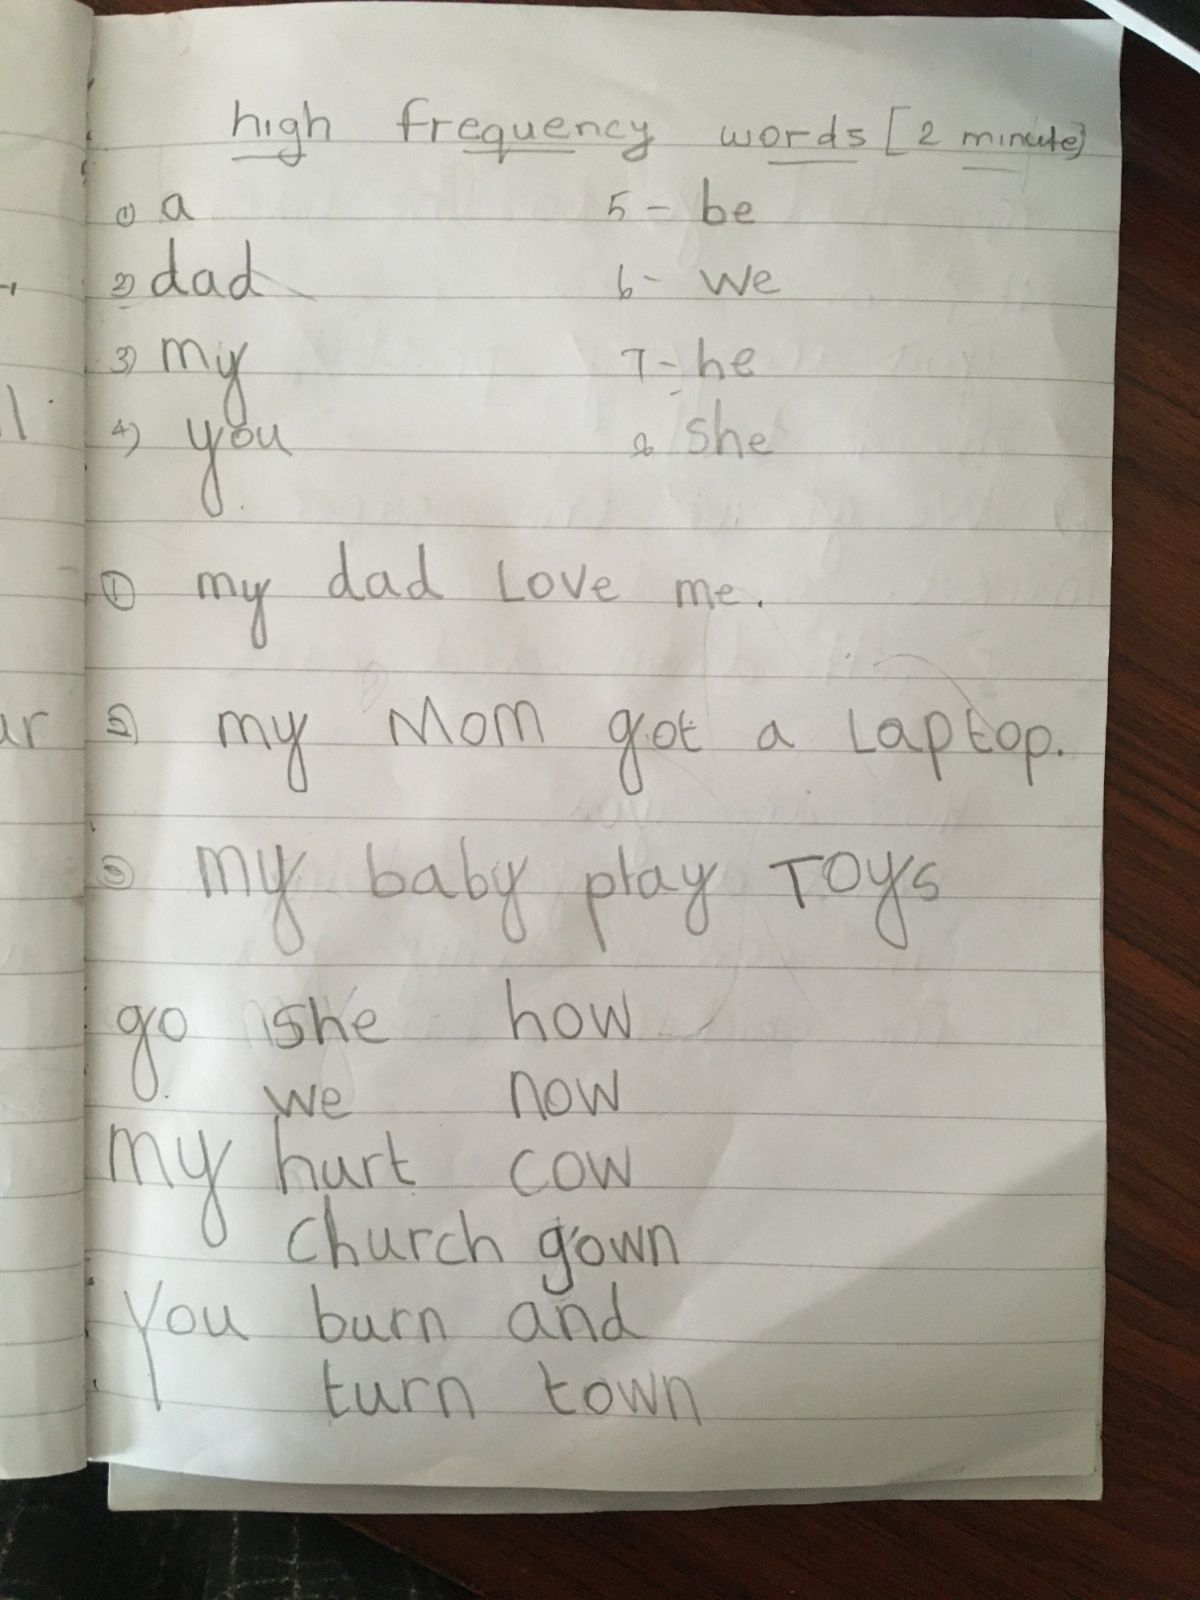 high frequency words [2 minute]
① a 5 - be
2) dad 6- we
3) my 7- he
4) you 8 she
① my dad Love me.
2) my Mom got a Laptop.
③ my baby play TOYS
go she how
we now
my hurt cow
church gown
you burn and
turn town
ur